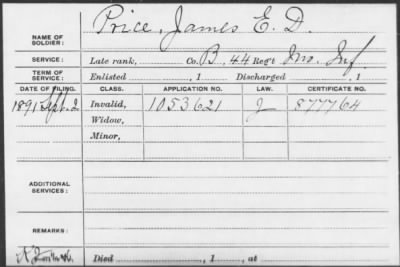 NAME OF SOLDIER: Price, James E. D.
SERVICE: Late rank, Co. B, 44 Regt Mo. Inf.
TERM OF SERVICE: Enlisted , 1 Discharged , 1
DATE OF FILING. CLASS. APPLICATION NO. LAW. CERTIFICATE NO.
1891 Sept. 2 Invalid, 1053621 J 877764
Widow,
Minor,
ADDITIONAL SERVICES:
REMARKS:
Died , 1 , at